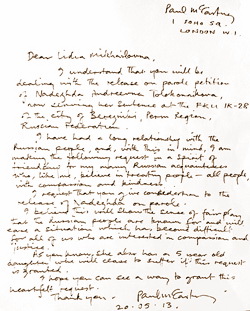 Paul McCartney
1 SOHO SQ.
LONDON W1.
Dear Lidia Mikhailovna,
I understand that you will be
dealing with the release on parole petition
of Nadezhda Andreevna Tolokonnikova,
now serving her sentence at the FKU IK-28
of the city of Berezniki, Perm Region,
Russian Federation.
I have had a long relationship with the
Russian people, and, with this in mind, I am
making the following request in a spirit of
friendship for my many Russian acquaintances
who, like me, believe in treating people — all people,
with compassion and kindness.
I request that you consider the
release of Nadezhda on parole.
I believe this will show the sense of fair play
that the Russian people are known for and will
ease a situation which has become difficult
for all of us who are interested in compassion and
justice.
As you know, she also has a 5 year old
daughter who will cease to suffer if this request
is granted.
I hope you can see a way to grant this
heartfelt request.
Thank you.
Paul McCartney
20.05.13.